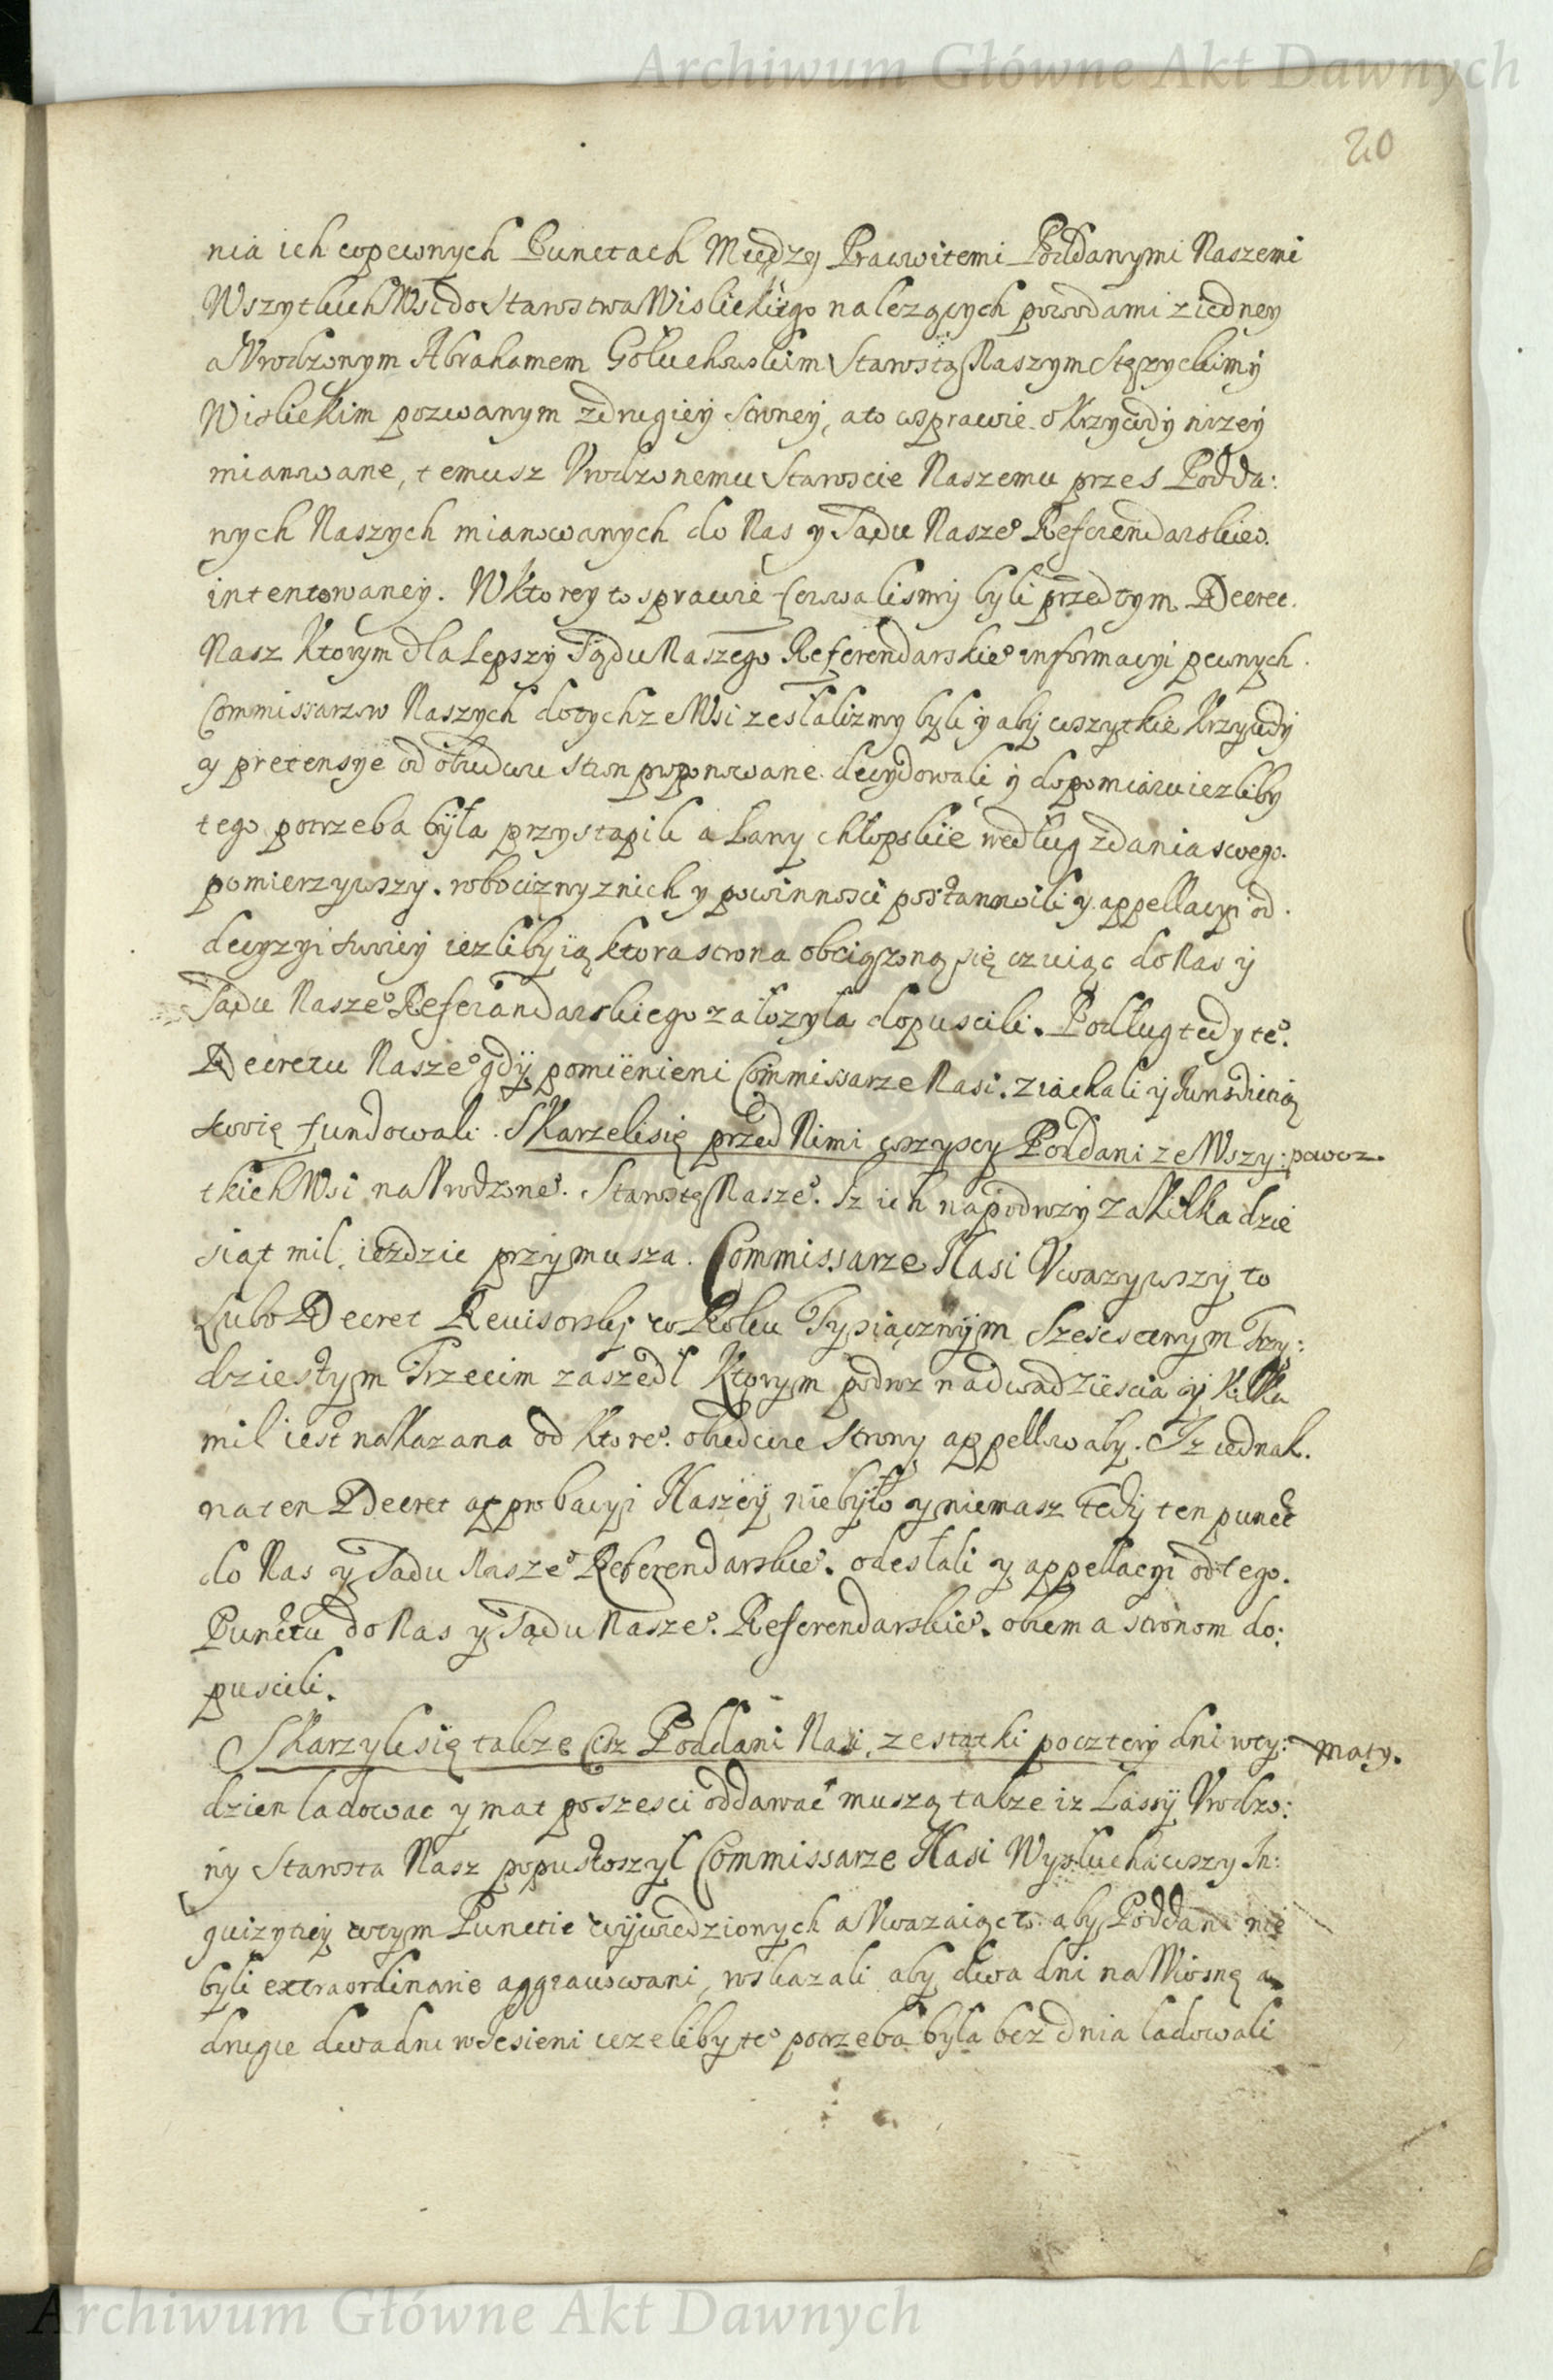 Archiwum Główne Akt Dawnych
20
nia ich w pewnych Punctach Między Pracowitemi Poddanymi Naszemi
Wszytkich Wsi do Starostwa Wislickiego nalezących powodami z iedney
a Vrodzonym Abrahamem Gołuchowskim Starostą Naszym Stęzyckim ÿ
Wislickim pozwanym z drugieÿ stroneÿ, a to w sprawie o Krzywdÿ nizeÿ
mianowane, temusz Vrodzonemu Staroscie Naszemu przes Podda:
nych Naszych mianowanych do Nas y Sądu Nasze° Referendarskie°.
intentowaneÿ. W ktorey to sprawie ferowalismÿ byli przed tym Decret.
Nasz Ktorym dla Lepszÿ Sądu Naszego Referendarskie° informacyi pewnych.
Commissarzow Naszych do tych ze Wsi zesłalizmy byli ÿ abÿ wszytkie Krzywdÿ
y pretensye od obudwu stron proponowane decydowali ÿ do pomiaru iezliby
tego potrzeba bÿła przystąpili a Łany chłopskie według zdania swego.
pomierzywszy. robocizny z nich y powinnosci postanowili y appellacyi od.
decyzyi swoieÿ iezliby ią ktora strona obciązoną się czuiąc do Nas ÿ
Sądu Nasze° Referandarskiego załozyła dopuscili. Podług tedy te°.
Decretu Nasze° gdÿ pomienieni Commissarze Nasi. ziachali ÿ Jurisdictią
swoię fundowali. Skarzeli się przed Nimi wszyscy Poddani ze Wszy: powoz.
tkich Wsi na Vrodzone°. Starostę Nasze°. Iz ich na podrozÿ za Kilka dzie
siąt mil iezdzic przÿmusza. Commissarze Nasi Vwazywszÿ to
Lubo Decret Revisorskÿ w Roku Tysiącznÿm Szescsetnym Trzy:
dziestym Trzecim zaszedł Ktorym podroz na dwadziescia ÿ Kilka
mil iest nakazana od Ktore°. obiedwie Strony appellowały. Iz iednak.
na ten Decret approbacyi Naszeÿ niebyło y niemasz tedÿ ten punct
do Nas y Sądu Nasze° Referendarskie°. odesłali y appellacyi od tego.
Punctu do Nas y Sądu Nasze°. Referendarskie°. obiema stronom do:
puscili.
Skarzyli się takze Cisz Poddani Nasi, ze statki po czterÿ dni w ty: maty.
dzien ladowac y mat po szesci oddawać muszą takze iz Lassÿ Vrodzo:
nÿ Starosta Nasz popustoszył Commissarze Nasi Wysłuchawszy In:
quizyciÿ w tym Punctie wÿwiedzionych a Vwazaiąc to. aby Poddani nie
byli extraordinarie aggrauowani, wskazali aby dwa dni na Wiosnę a
drugie dwa dni w Iesieni iezeliby te° potrzeba była bez dnia ladowali
Archiwum Główne Akt Dawnych